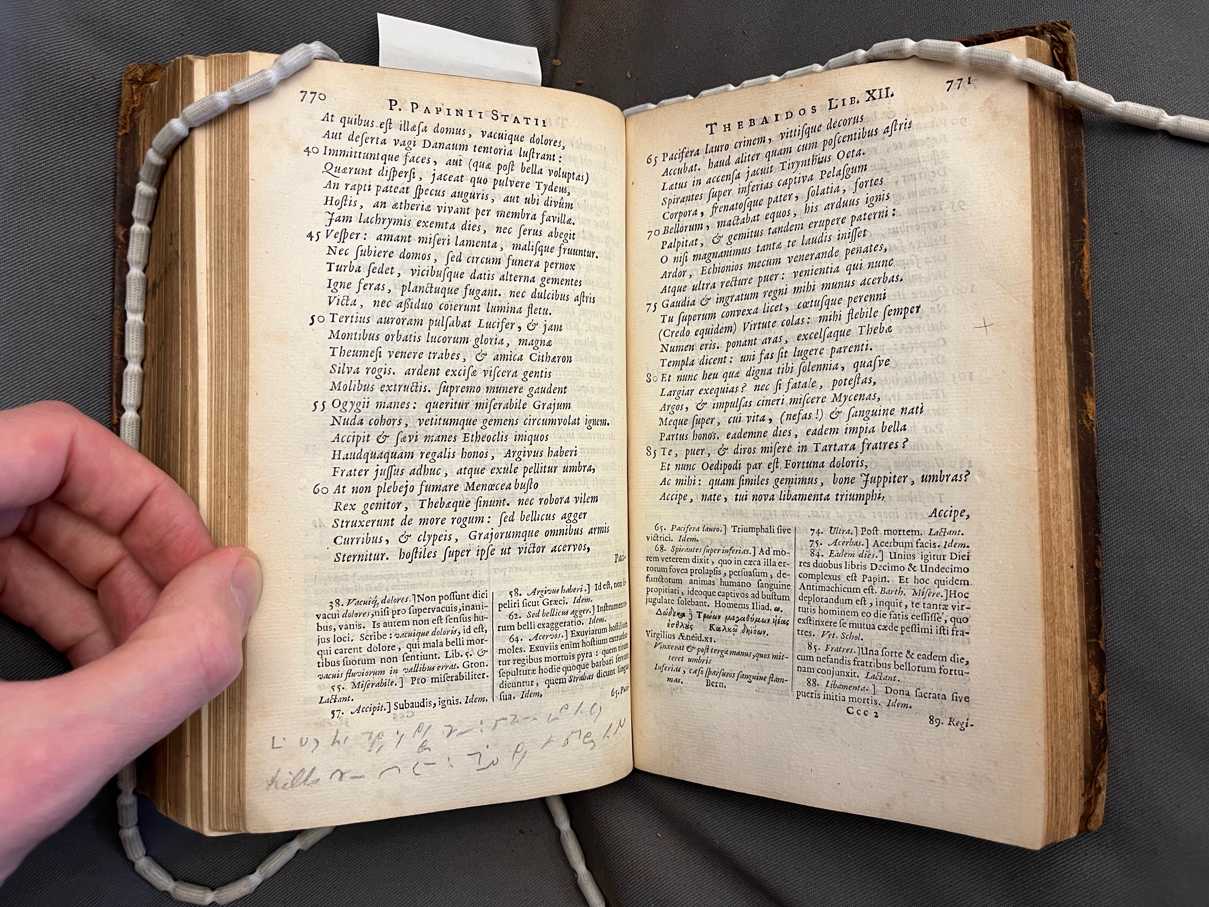 770
P. PAPINII STATII
At quibus est illæsa domus, vacuique dolores,
Aut deserta vagi Danaum tentoria lustrant:
40 Immittuntque faces, aut (quæ post bella voluptas)
Quærunt dispersi, jaceat quo pulvere Tydeus,
An rapti pateat specus auguris, aut ubi divûm
Hostis, an ætheriæ vivant per membra favillæ.
Jam lachrymis exemta dies, nec serus abegit
45 Vesper: amant miseri lamenta, malisque fruuntur.
Nec subiere domos, sed circum funera pernox
Turba sedet, vicibusque datis alterna gementes
Igne feras, planctuque fugant. nec dulcibus astris
Victa, nec assiduo coierunt lumina fletu.
50 Tertius auroram pulsabat Lucifer, & jam
Montibus orbatis lucorum gloria, magnæ
Theumesi venere trabes, & amica Cithæron
Silva rogis. ardent excisæ viscera gentis
Molibus extructis. supremo munere gaudent
55 Ogygii manes: queritur miserabile Grajum
Nuda cohors, vetitumque gemens circumvolat ignem.
Accipit & sævi manes Etheoclis iniquos
Haudquaquam regalis honos, Argivus haberi
Frater jussus adhuc, atque exule pellitur umbra,
60 At non plebejo fumare Menœcea busto
Rex genitor, Thebæque sinunt. nec robora vilem
Struxerunt de more rogum: sed bellicus agger
Curribus, & clypeis, Grajorumque omnibus armis
Sternitur. hostiles super ipse ut victor acervos,
38. Vacuiq; dolores.] Non possunt dici
vacui dolores, nisi pro supervacuis, inani-
bus, vanis. Is autem non est sensus hu-
jus loci. Scribe: vacuique doloris, id est,
qui carent dolore, qui mala belli mor-
tibus suorum non sentiunt. Lib. 5. &
vacuis fluviorum in vallibus errat. Gron.
55. Miserabile.] Pro miserabiliter.
Lactant.
57. Accipit.] Subaudis, ignis. Idem.
58. Argivus haberi.] Id est, non
peliri sicut Græci. Idem.
62. Sed bellicus agger.] Instrumento
rum belli exaggeratio. Idem.
64. Acervos.] Exuviarum hostilium
moles. Exuviis enim hostium extruebatur
tur regibus mortuis pyra: quem
sepulturæ hodie quoque barbari
dicuntur, quem Strabas dicunt
sua. Idem,
65. Paci-
kills
771
THEBAIDOS LIB. XII.
65 Pacifera lauro crinem, vittisque decorus
Accubat. haud aliter quam cum poscentibus astris
Lætus in accensa jacuit Tirynthius Oeta.
Spirantes super inferias captiva Pelasgum
Corpora, frenatosque pater, solatia, fortes
70 Bellorum, mactabat equos, his arduus ignis
Palpitat, & gemitus tandem erupere paterni:
O nisi magnanimus tantæ te laudis inisset
Ardor, Echionios mecum venerande penates,
Atque ultra recture puer: venientia qui nunc
75 Gaudia & ingratum regni mihi munus acerbas.
Tu superum convexa licet, cœtusque perenni
(Credo equidem) Virtute colas: mihi flebile semper
Numen eris. ponant aras, excelsaque Thebæ
Templa dicent: uni fas sit lugere parenti.
80 Et nunc heu quæ digna tibi solennia, quasve
Largiar exequias? nec si fatale, potestas,
Argos, & impulsas cineri miscere Mycenas,
Meque super, cui vita, (nefas!) & sanguine nati
Partus honos. eademne dies, eadem impia bella
85 Te, puer, & diros misere in Tartara fratres?
Et nunc Oedipodi par est Fortuna doloris,
Ac mihi: quam similes gemimus, bone Juppiter, umbras?
Accipe, nate, tui nova libamenta triumphi,
Accipe,
65. Pacifera lauro.] Triumphali sive
victrici. Idem.
68. Spirantes super inferias.] Ad mo-
rem veterem dixit, quo in cæca illa er-
rorum fovea prolapsis, persuasum, de-
functorum animas humano sanguine
propitiari, ideoque captivos ad bustum
jugulare solebant. Homerus Iliad. ω.
Virgilius Æneid. XI.
Vinxerat & post terga manus, quos mit-
teret umbris
Inferias, cæso sparsuros sanguine flam-
mas. Bern.
74. Ultra.] Post mortem. Lactant.
75. Acerbas.] Acerbum facis. Idem.
84. Eadem dies.] Unius igitur Diei
res duobus libris Decimo & Undecimo
complexus est Papin. Et hoc quidem
Antimachicum est. Barth. Misere.] Hoc
deplorandum est, inquit, te tantæ vir-
tutis hominem eo die fatis cessisse, quo
extinxere se mutua cæde pessimi isti fra-
tres. Vet. Schol.
85. Fratres.] Una sorte & eadem die,
cum nefandis fratribus bellorum fortu-
nam conjunxit. Lactant.
88. Libamenta.] Dona sacrata sive
pueris initia mortis. Idem.
Ccc 2
89. Regi-